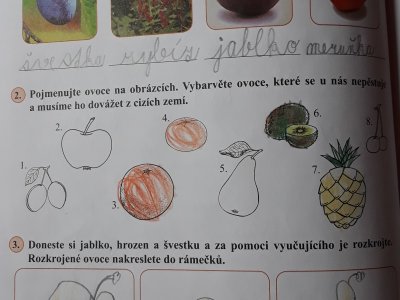 švestka rybíz jablko meruňka
2. Pojmenujte ovoce na obrázcích. Vybarvěte ovoce, které se u nás nepěstuje
a musíme ho dovážet z cizích zemí.
1.
2.
3.
4.
5.
6.
7.
8.
3. Doneste si jablko, hrozen a švestku a za pomoci vyučujícího je rozkrojte.
Rozkrojené ovoce nakreslete do rámečků.